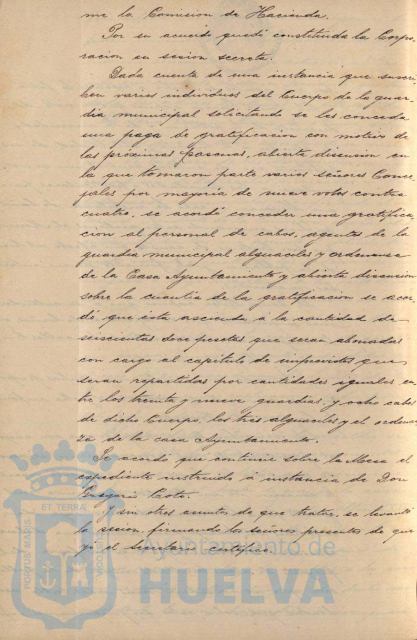 me la Comision de Hacienda.
Por su acuerdo quedó constituida la Corpo-
racion en sesion secreta.
Dada cuenta de una instancia que suscri-
ben varios individuos del Cuerpo de la guar-
dia municipal solicitando se les conceda
una paga de gratificacion con motivo de
las próximas Pascuas, abierta discusion en
la que tomaron parte varios señores Conce-
jales por mayoria de nueve votos contra
cuatro, se acordó conceder una gratifica-
cion al personal de cabos, agentes de la
guardia municipal alguaciles y ordenanza
de la Casa Ayuntamiento y abierta discusion
sobre la cuantia de la gratificacion se acor-
dó que ésta ascienda á la cantidad de
seiscientas doce pesetas que serán abonadas
con cargo al capitulo de imprevistos que
seran repartidas por cantidades iguales en-
tre los treinta y nueve guardias, y ocho cabos
de dicho Cuerpo, los tres alguaciles y el ordenan-
za de la casa Ayuntamiento.
Se acordó que continúe sobre la Mesa el
expediente instruido á instancia de Don
Gregorio
Y sin otros asuntos de que tratar, se levantó
la sesion, firmando los señores presentes de que
yo el Secretario certifico.
ET TERRÆ
PORTUS MARIS
CUSTODIA
Ayuntamiento de
HUELVA